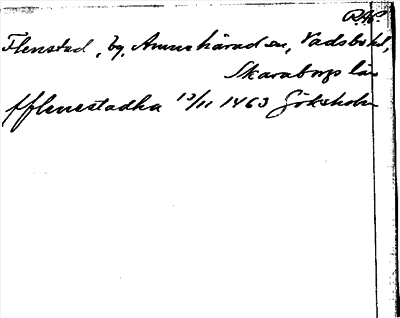 Flenstad, by, Amnehärad sn, Vadsbo hd,
Skaraborgs län
fflenestadha 13/11 1463 Göksholm